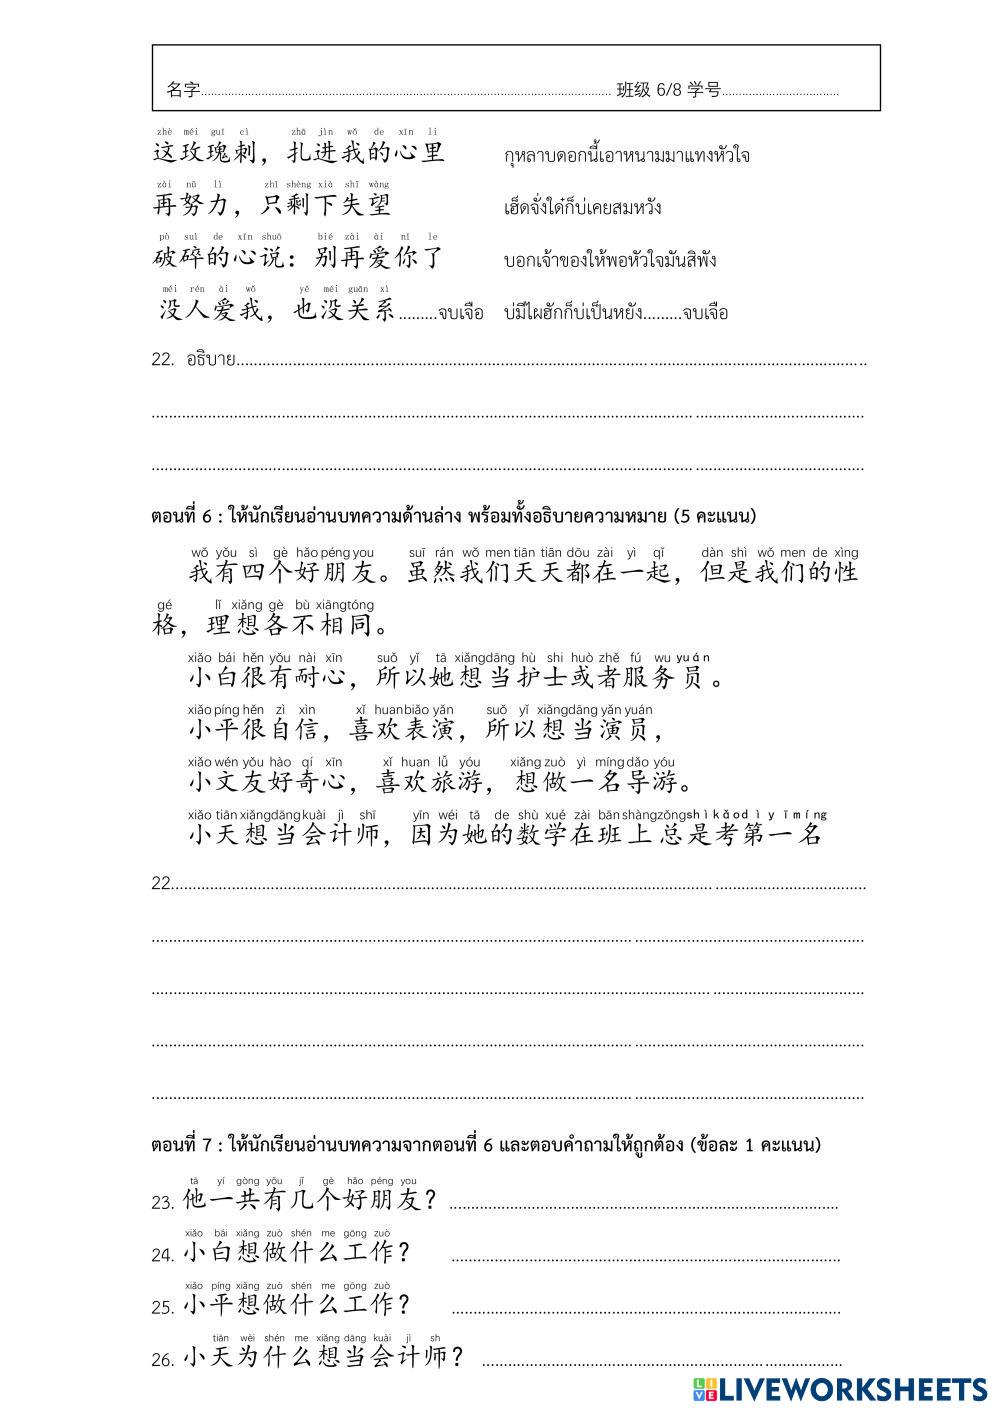 名字........................................ 班级 6/8 学号....................
zhè méi guī cì zhā jìn wǒ de xīn li
这玫瑰刺，扎进我的心里 กุหลาบดอกนี้เอาหนามมาแทงหัวใจ
zài nǔ lì zhī shèng xià shī wàng
再努力，只剩下失望 เฮ็ดจั่งใด๋ก็บ่เคยสมหวัง
pò suì de xīn shuō bié zài ài nǐ le
破碎的心说：别再爱你了 บอกเจ้าของให้พอหัวใจมันสิพัง
méi rén ài wǒ yě méi guān xì
没人爱我，也没关系.........จบเจือ บ่มีไผฮักก็บ่เป็นหยัง.........จบเจือ
22. อธิบาย........................................
ตอนที่ 6 : ให้นักเรียนอ่านบทความด้านล่าง พร้อมทั้งอธิบายความหมาย (5 คะแนน)
wǒ yǒu sì gè hǎo péng you suī rán wǒ men tiān tiān dōu zài yì qǐ dàn shì wǒ men de xìng
我有四个好朋友。虽然我们天天都在一起，但是我们的性
gé lǐ xiǎng gè bù xiāng tóng
格，理想各不相同。
xiǎo bái hěn yǒu nài xīn suǒ yǐ tā xiǎng dāng hù shi huò zhě fú wu yuán
小白很有耐心，所以她想当护士或者服务员。
xiǎo píng hěn zì xìn xǐ huan biǎo yǎn suǒ yǐ xiǎng dāng yǎn yuán
小平很自信，喜欢表演，所以想当演员，
xiǎo wén yǒu hào qí xīn xǐ huan lǚ yóu xiǎng zuò yì míng dǎo yóu
小文友好奇心，喜欢旅游，想做一名导游。
xiǎo tiān xiǎng dāng kuài jì shī yīn wéi tā de shù xué zài bān shàng zǒng shì kǎo d ì y ī míng
小天想当会计师，因为她的数学在班上总是考第一名
22........................................
ตอนที่ 7 : ให้นักเรียนอ่านบทความจากตอนที่ 6 และตอบคำถามให้ถูกต้อง (ข้อละ 1 คะแนน)
tā yí gòng yǒu jǐ gè hǎo péng you
23. 他一共有几个好朋友？........................................
xiǎo bái xiǎng zuò shén me gōng zuò
24. 小白想做什么工作？........................................
xiǎo píng xiǎng zuò shén me gōng zuò
25. 小平想做什么工作？........................................
tiān wèi shén me xiǎng dāng kuài jì sh
26. 小天为什么想当会计师？........................................
LIVE LIVEWORKSHEETS